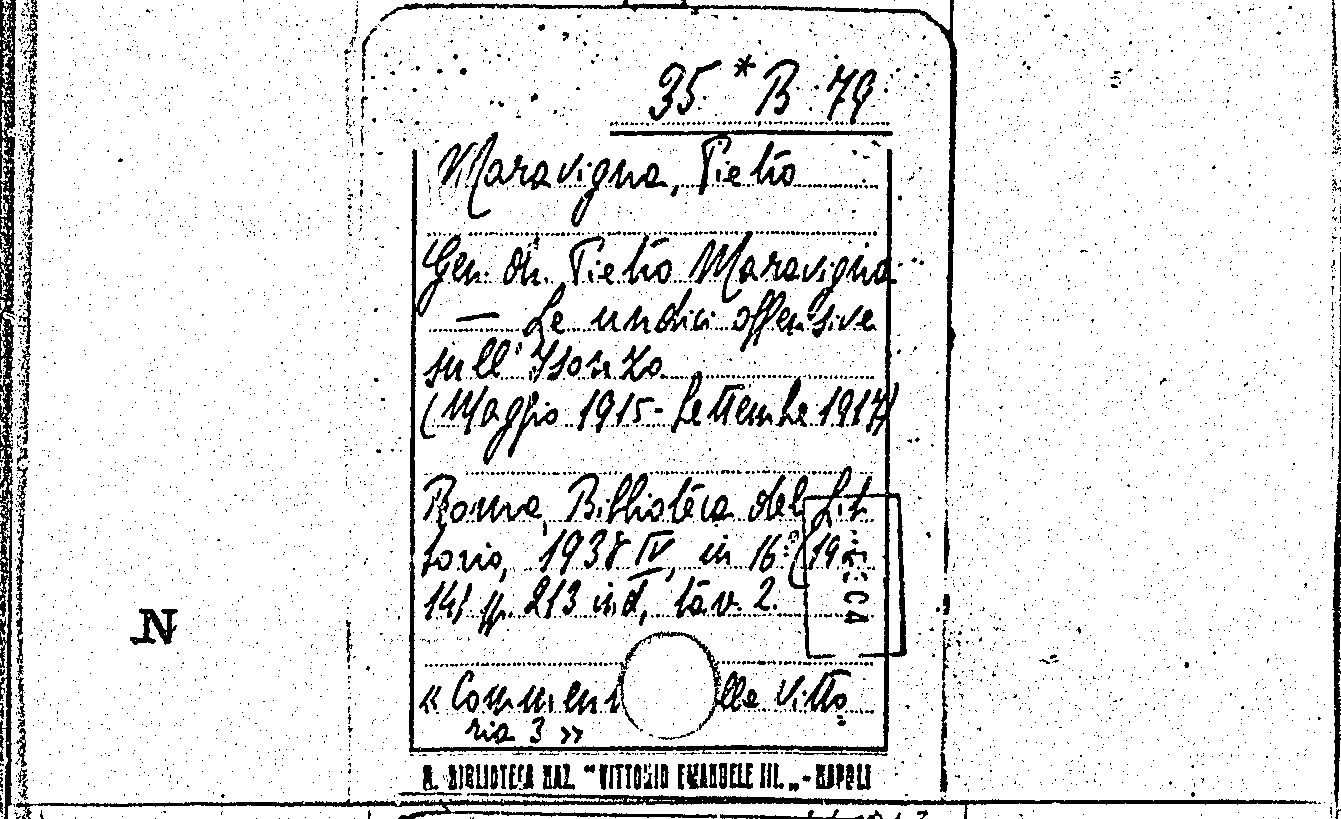 35.*B.79
Maravigna, Pietro
Gen. Pietro Maravigna
— Le undici offensive
sull'Isonzo
(Maggio 1915-Settembre 1917)
Roma, Biblioteca del Lit
torio, 1938 IV, in 16° (19
14) pp. 213 ind, tav. 2.
N
« Comment lle vitto
ria 3 »
R. BIBLIOTECA NAZ. "VITTORIO EMANUELE III. „ - NAPOLI